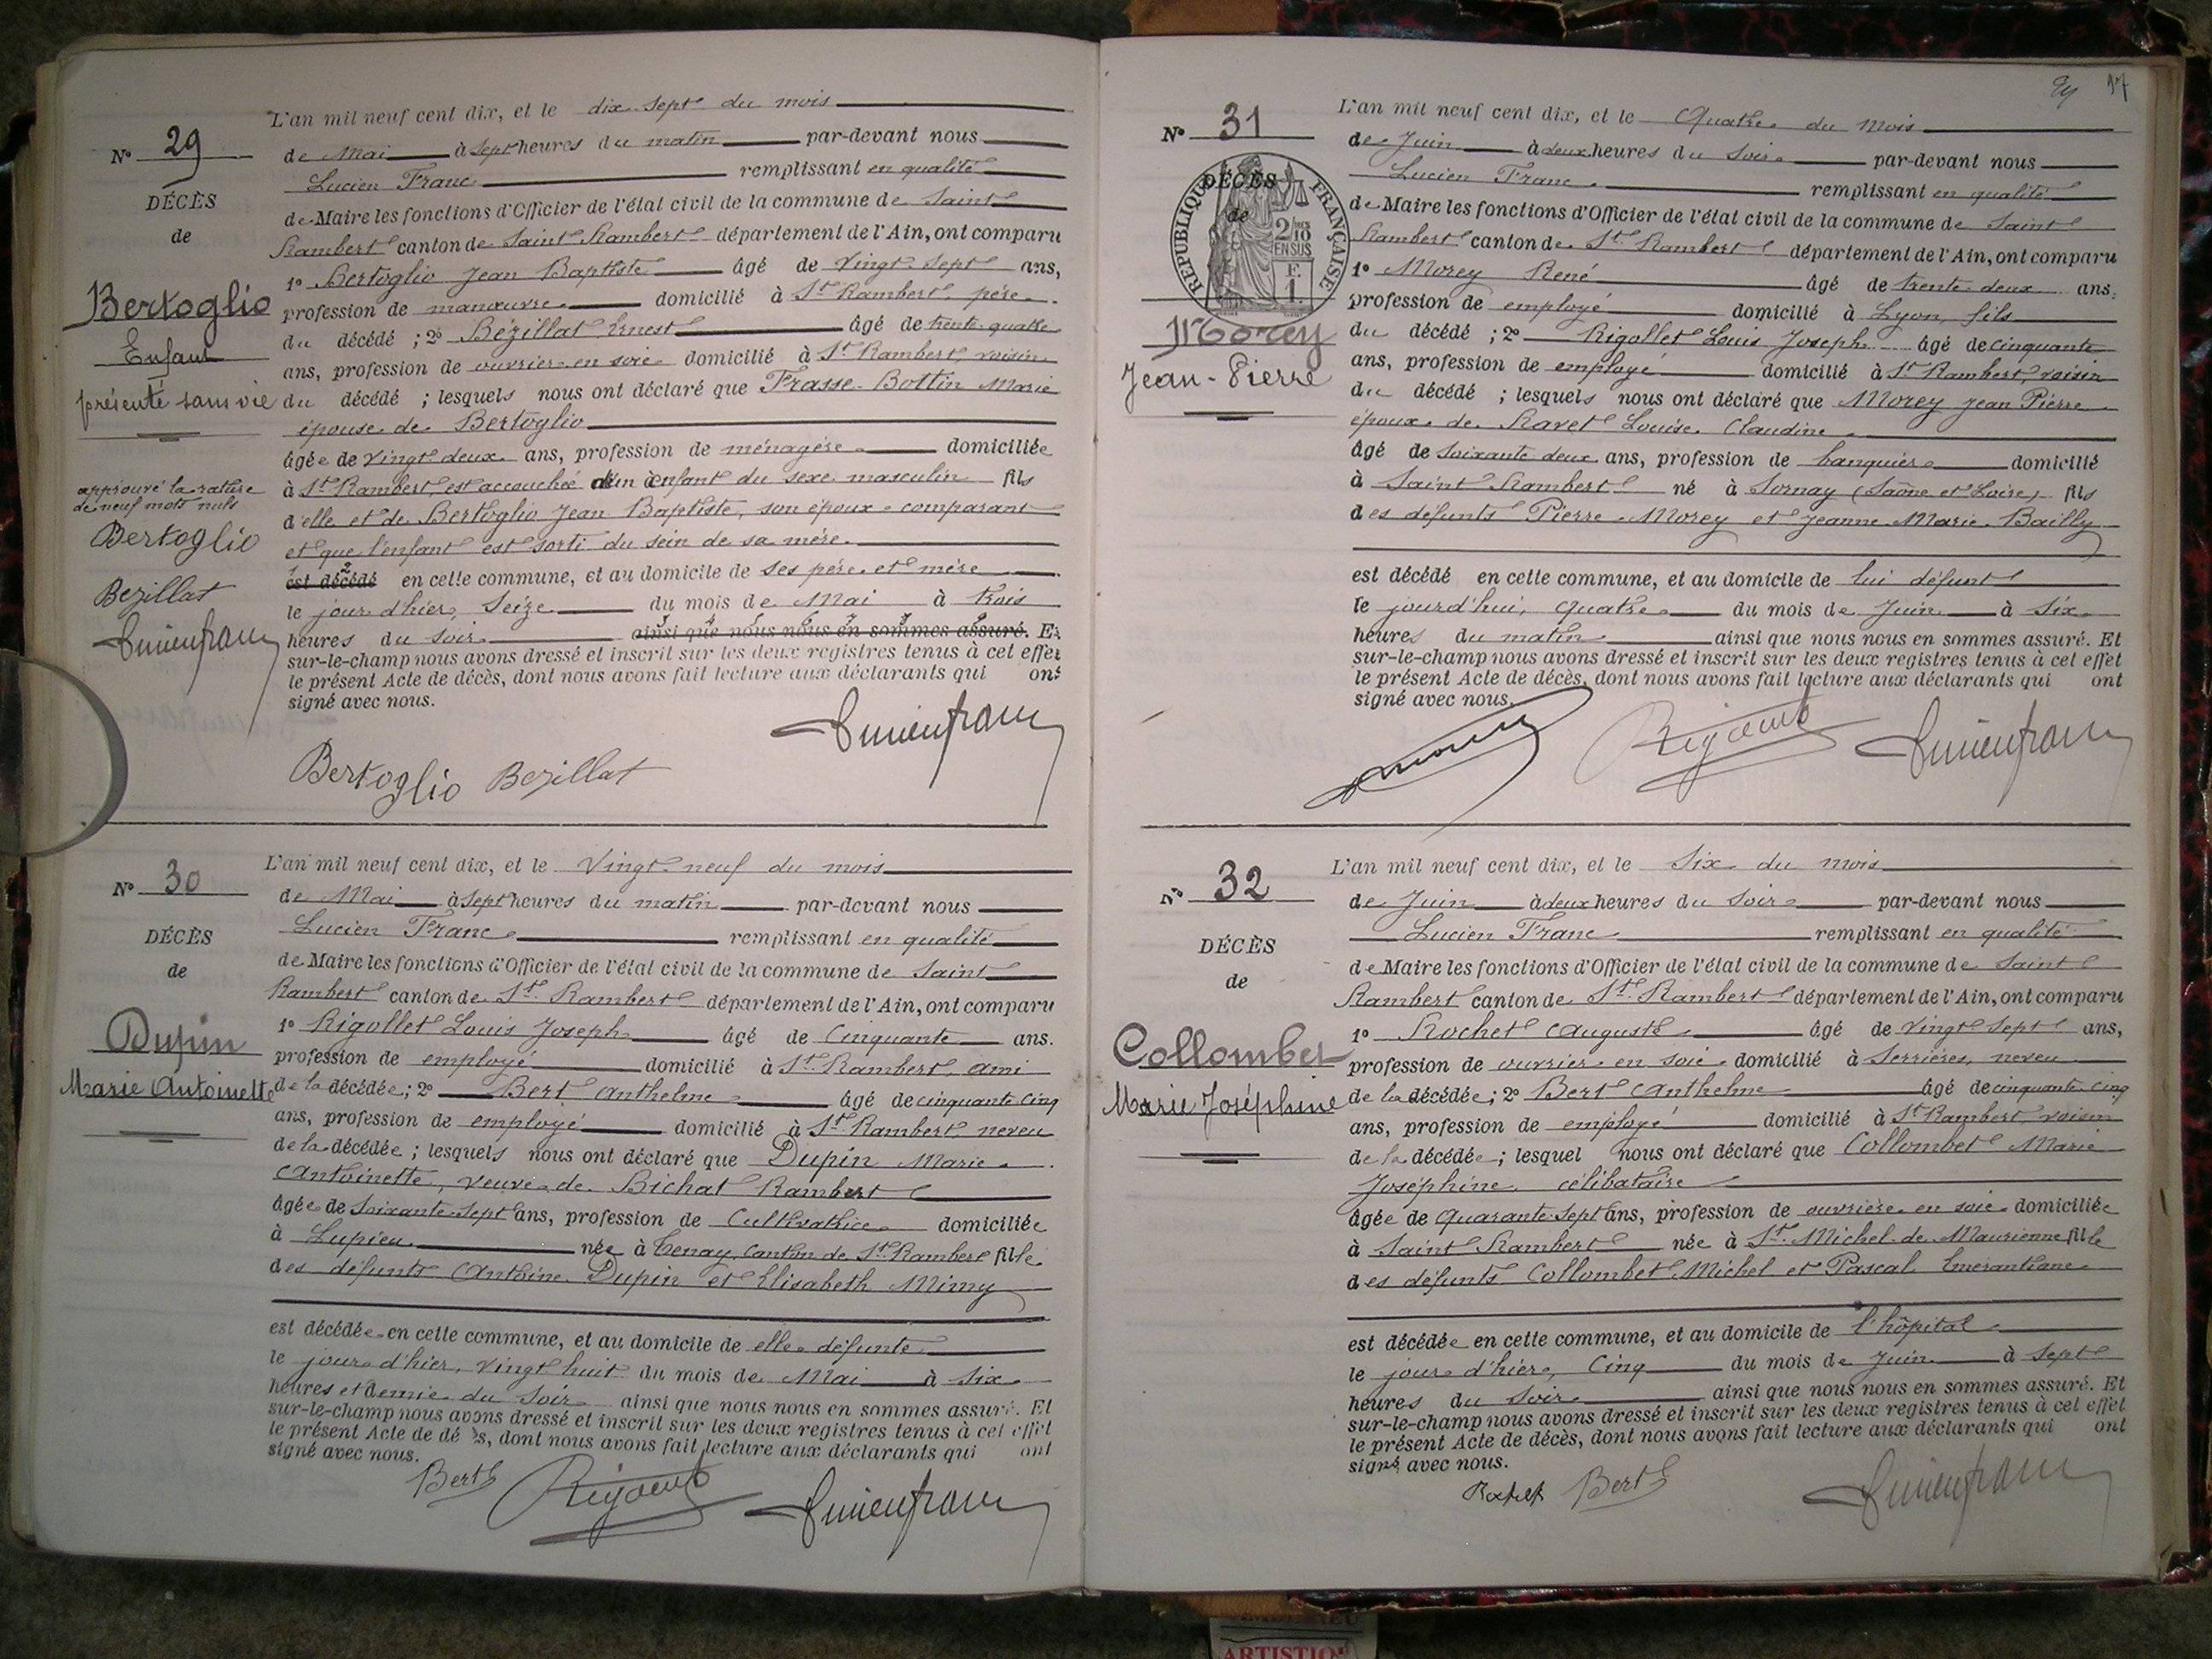 L'an mil neuf cent dix, et le dix sept du mois
N° 29
de Mai à sept heures du matin par-devant nous
Lucien Franc remplissant en qualité
DÉCÈS
de Maire les fonctions d'Officier de l'état civil de la commune de Saint
de
Rambert canton de Saint Rambert département de l'Ain, ont comparu
1° Bertoglio Jean Baptiste âgé de vingt-sept ans,
Bertoglio
profession de manœuvre domicilié à St Rambert, père
du décédé ; 2° Bézillat Ernest âgé de trente-quatre
Enfant
ans, profession de ouvrier en soie domicilié à St Rambert voisin
présenté sans vie
du décédé ; lesquels nous ont déclaré que Frasse-Bottin Marie
épouse de Bertoglio
âgée de vingt-deux ans, profession de ménagère domiciliée
approuvé la rature
de neuf mots nuls
à St Rambert, est accouchée d'un enfant du sexe masculin fils
d'elle et de Bertoglio Jean Baptiste, son époux comparant
Bertoglio
et que l'enfant est sorti du sein de sa mère.
est décédé en cette commune, et au domicile de ses père et mère
Bezillat
le jour d'hier, seize du mois de Mai à trois
Lucien franc
heures du soir ainsi que nous nous en sommes assuré. Et
sur-le-champ nous avons dressé et inscrit sur les deux registres tenus à cet effet
le présent Acte de décès, dont nous avons fait lecture aux déclarants qui ont
signé avec nous.
Lucien franc
Bertoglio Bezillat
L'an mil neuf cent dix, et le Vingt-neuf du mois
N° 30
de Mai à sept heures du matin par-devant nous
Lucien Franc remplissant en qualité
DÉCÈS
de Maire les fonctions d'Officier de l'état civil de la commune de Saint
de
Rambert canton de St Rambert département de l'Ain, ont comparu
1° Rigollet Louis Joseph âgé de Cinquante ans.
Dupin
profession de employé domicilié à St Rambert ami
Marie Antoinette
de la décédée ; 2° Bert Anthelme âgé de cinquante cinq
ans, profession de employé domicilié à St Rambert, neveu
de la décédée ; lesquels nous ont déclaré que Dupin Marie
Antoinette, veuve de Bichat Rambert
âgée de Soixante-sept ans, profession de Cultivatrice domiciliée
à Lupieu née à Tenay, Canton de St Rambert fille
des défunts Antoine Dupin et Elisabeth Mimy
est décédée en cette commune, et au domicile de elle défunte
le jour d'hier, vingt huit du mois de Mai à six
heures et demie du soir ainsi que nous nous en sommes assuré. Et
sur-le-champ nous avons dressé et inscrit sur les deux registres tenus à cet effet
le présent Acte de dé s, dont nous avons fait lecture aux déclarants qui ont
signé avec nous.
Bert Rigollet Lucien franc
17
L'an mil neuf cent dix, et le Quatre du mois
N° 31
de Juin à deux heures du soir par-devant nous
Lucien Franc remplissant en qualité
DÉCÈS
de
RÉPUBLIQUE FRANÇAISE
2/10 EN SUS
F. 1.
de Maire les fonctions d'Officier de l'état civil de la commune de Saint
Rambert canton de St Rambert département de l'Ain, ont comparu
1° Morey René âgé de trente-deux ans,
profession de employé domicilié à Lyon, fils
Morey
du décédé ; 2° Rigollet Louis Joseph âgé de cinquante
Jean-Pierre
ans, profession de employé domicilié à St Rambert, voisin
du décédé ; lesquels nous ont déclaré que Morey Jean Pierre
époux de Ravet Louise Claudine
âgé de soixante deux ans, profession de banquier domicilié
à Saint Rambert né à Sornay (Saône et Loire) fils
des défunts Pierre Morey et Jeanne Marie Bailly
est décédé en cette commune, et au domicile de lui défunt
le jourd'hui, quatre du mois de Juin à six
heures du matin ainsi que nous nous en sommes assuré. Et
sur-le-champ nous avons dressé et inscrit sur les deux registres tenus à cet effet
le présent Acte de décès, dont nous avons fait lecture aux déclarants qui ont
signé avec nous.
Rigollet Lucien franc
L'an mil neuf cent dix, et le Six du mois
N° 32
de Juin à deux heures du soir par-devant nous
Lucien Franc remplissant en qualité
DÉCÈS
de Maire les fonctions d'Officier de l'état civil de la commune de Saint
de
Rambert canton de St Rambert département de l'Ain, ont comparu
1° Rochet Auguste âgé de vingt-sept ans,
Collombet
profession de ouvrier en soie domicilié à Serrières, neveu
Marie Joséphine
de la décédée ; 2° Bert Anthelme âgé de cinquante-cinq
ans, profession de employé domicilié à St Rambert, voisin
de la décédée ; lesquel nous ont déclaré que Collombet Marie
Joséphine, célibataire
âgée de quarante-sept ans, profession de ouvrière en soie domiciliée
à Saint Rambert née à St Michel de Maurienne fille
des défunts Collombet Michel et Pascal Emérantiane
est décédée en cette commune, et au domicile de l'hôpital
le jour d'hier, Cinq du mois de Juin à sept
heures du soir ainsi que nous nous en sommes assuré. Et
sur-le-champ nous avons dressé et inscrit sur les deux registres tenus à cet effet
le présent Acte de décès, dont nous avons fait lecture aux déclarants qui ont
signé avec nous.
Rochet Bert Lucien franc